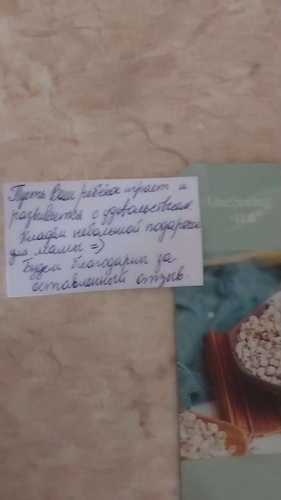 Пусть Ваш ребёнок играет и
развивается с удовольствием.
Кладём небольшой подарочек
для мамы =)
Будем благодарны за
оставленный отзыв.